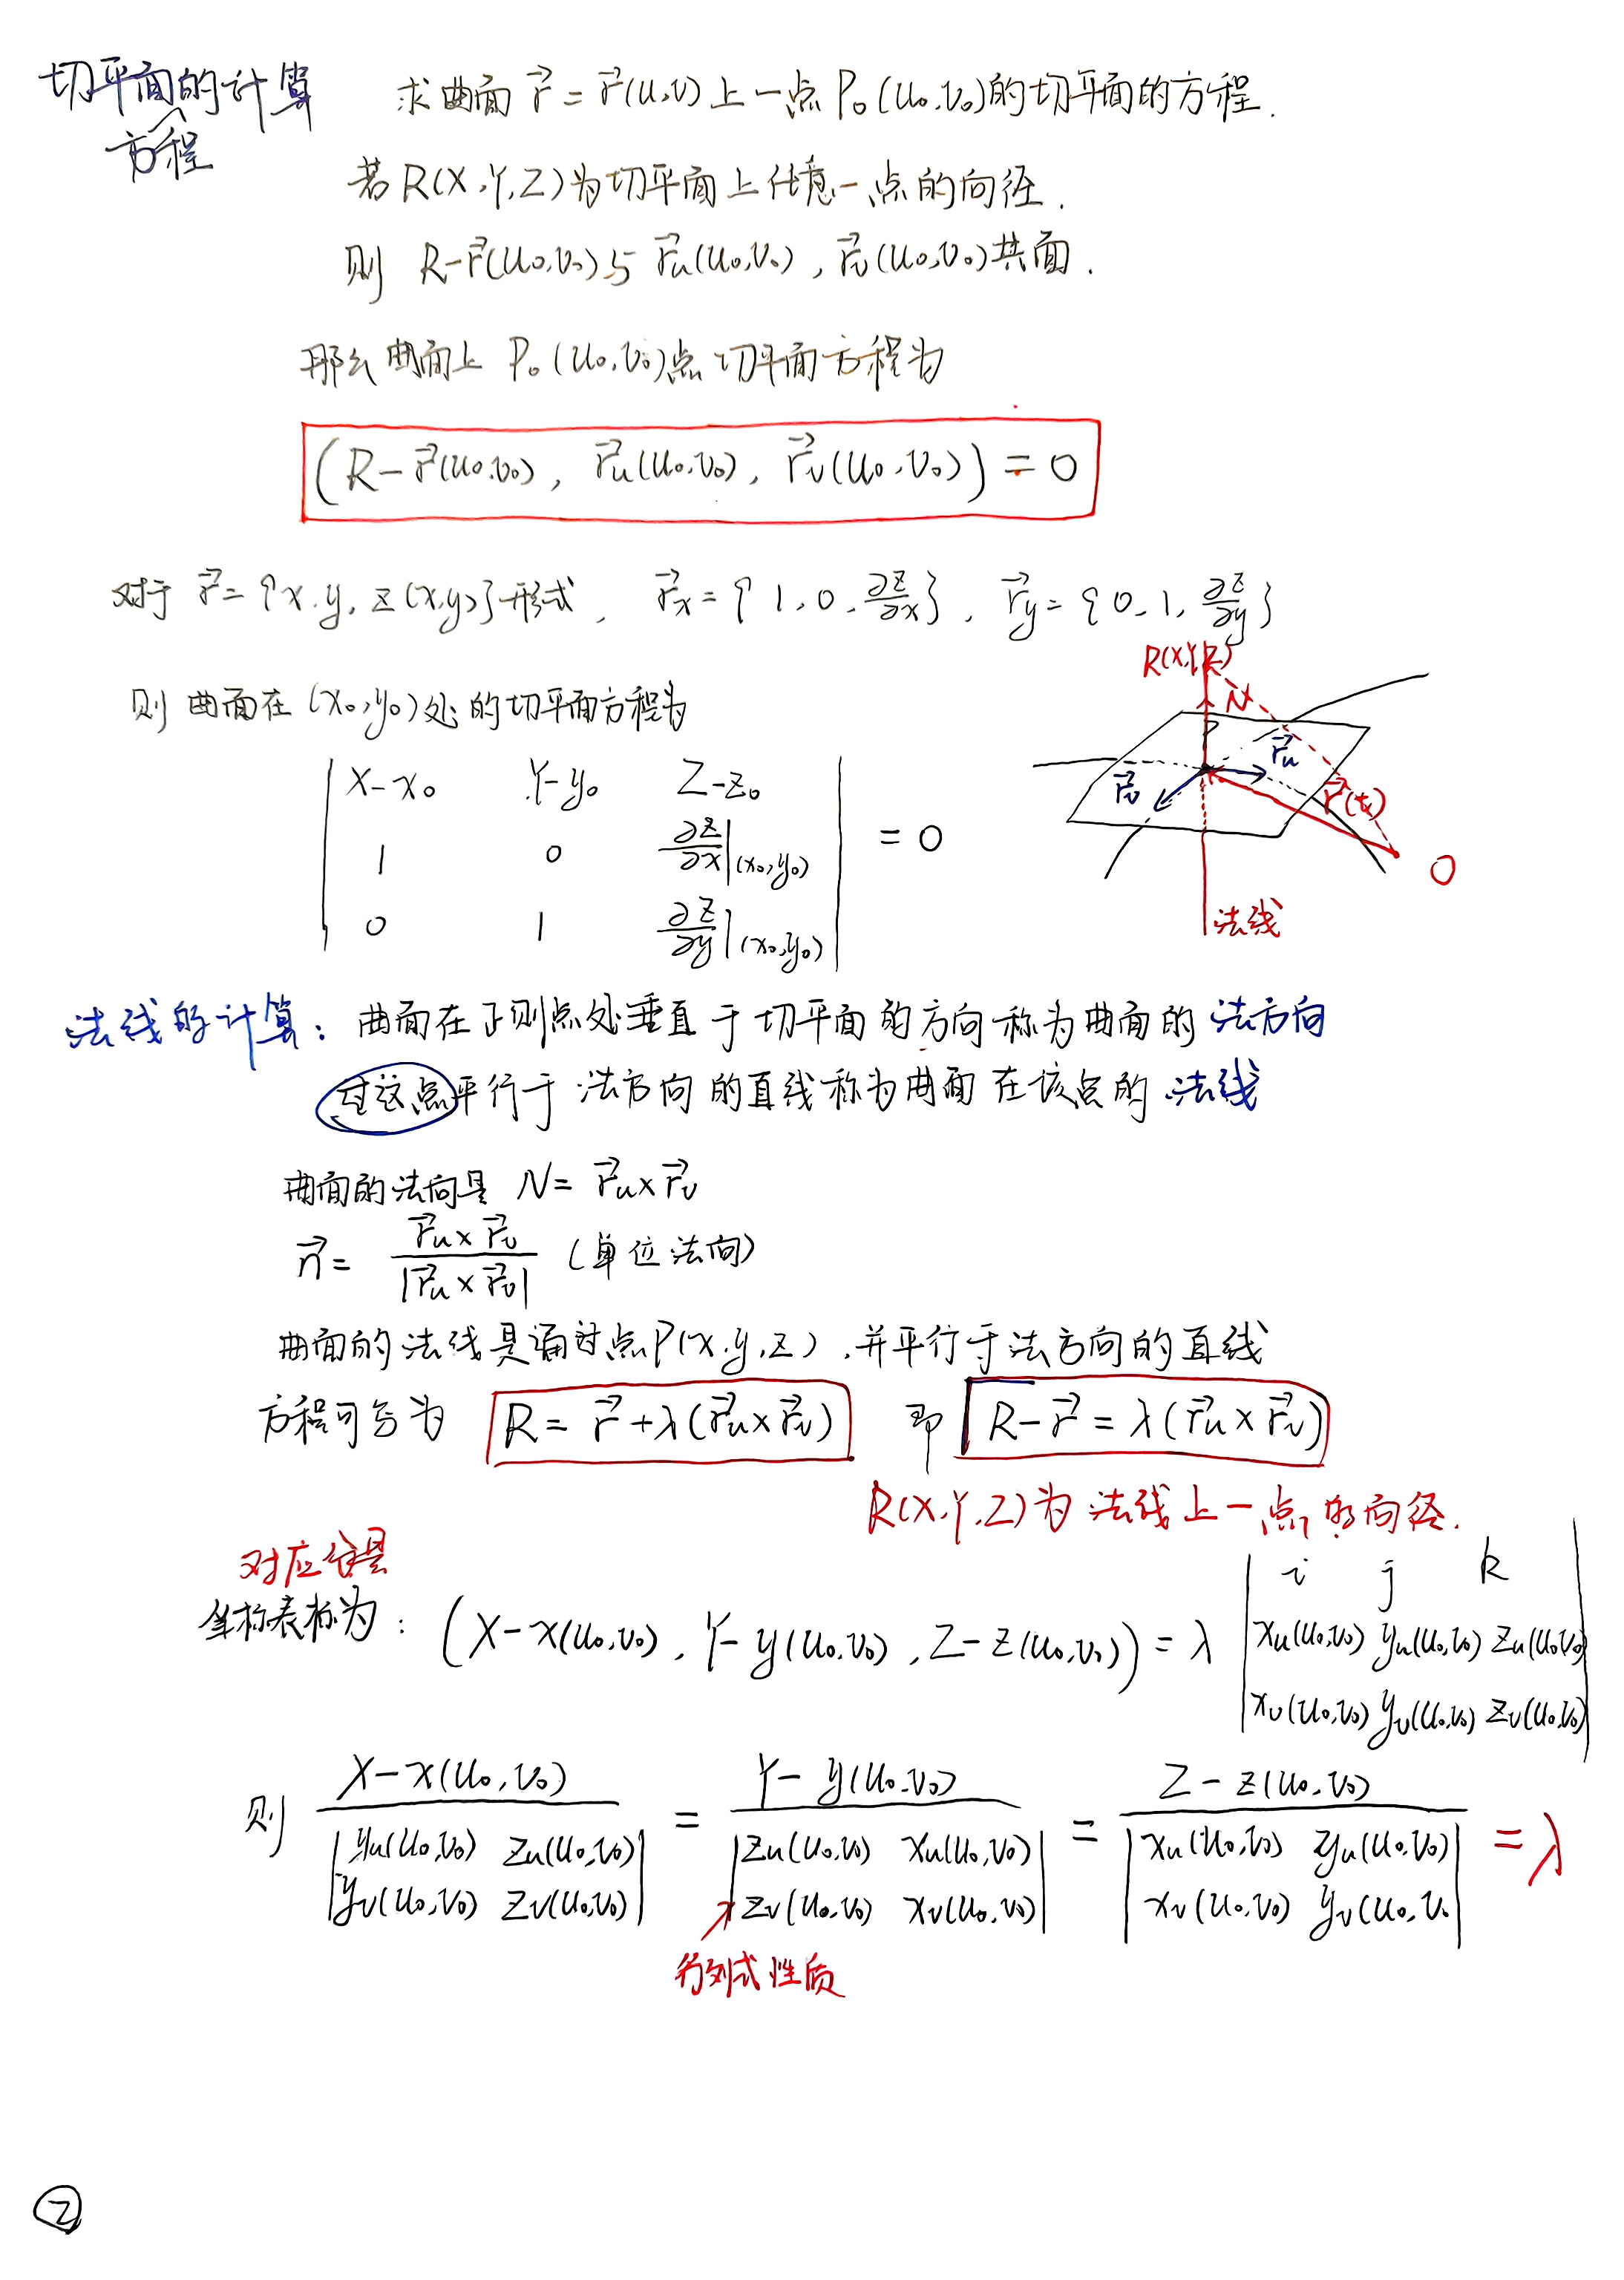 切平面的计算 求曲面 r⃗ = r⃗(u,v) 上一点 P₀(u₀,v₀)的切平面的方程.
方程
若 R(X,Y,Z)为切平面上任意一点的向径.
则 R-r⃗(u₀,v₀)与 r⃗ᵤ(u₀,v₀), r⃗ᵥ(u₀,v₀)共面.
那么曲面上 P₀(u₀,v₀)点切平面方程为
(R-r⃗(u₀,v₀), r⃗ᵤ(u₀,v₀), r⃗ᵥ(u₀,v₀))=0
对于 r⃗={x,y,z(x,y)}形式, r⃗_x={1,0,∂z/∂x}, r⃗_y={0,1,∂z/∂y}
则曲面在(x₀,y₀)处的切平面方程为
| X-x₀ Y-y₀ Z-z₀ |
| 1 0 ∂z/∂x|(x₀,y₀) | = 0
| 0 1 ∂z/∂y|(x₀,y₀) |
N
P
r⃗ᵤ
r⃗ᵥ
O
法线
法线的计算: 曲面在正则点处垂直于切平面的方向称为曲面的法方向
过这点平行于法方向的直线称为曲面在该点的法线
曲面的法向是 N= r⃗ᵤ×r⃗ᵥ
n⃗= (r⃗ᵤ×r⃗ᵥ)/|r⃗ᵤ×r⃗ᵥ| (单位法向)
曲面的法线是通过点P(x,y,z),并平行于法方向的直线
方程可写为 R= r⃗+λ(r⃗ᵤ×r⃗ᵥ) 即 R-r⃗=λ(r⃗ᵤ×r⃗ᵥ)
R(X,Y,Z)为法线上一点的向径.
对应分量
坐标表称为: (X-x(u₀,v₀), Y-y(u₀,v₀), Z-z(u₀,v₀))=λ
| i j k |
| xᵤ(u₀,v₀) yᵤ(u₀,v₀) zᵤ(u₀,v₀) |
| xᵥ(u₀,v₀) yᵥ(u₀,v₀) zᵥ(u₀,v₀) |
则 X-x(u₀,v₀) = Y-y(u₀,v₀) = Z-z(u₀,v₀) = λ
|yᵤ(u₀,v₀) zᵤ(u₀,v₀)| |zᵤ(u₀,v₀) xᵤ(u₀,v₀)| |xᵤ(u₀,v₀) yᵤ(u₀,v₀)|
|yᵥ(u₀,v₀) zᵥ(u₀,v₀)| |zᵥ(u₀,v₀) xᵥ(u₀,v₀)| |xᵥ(u₀,v₀) yᵥ(u₀,v₀|
行列式性质
②